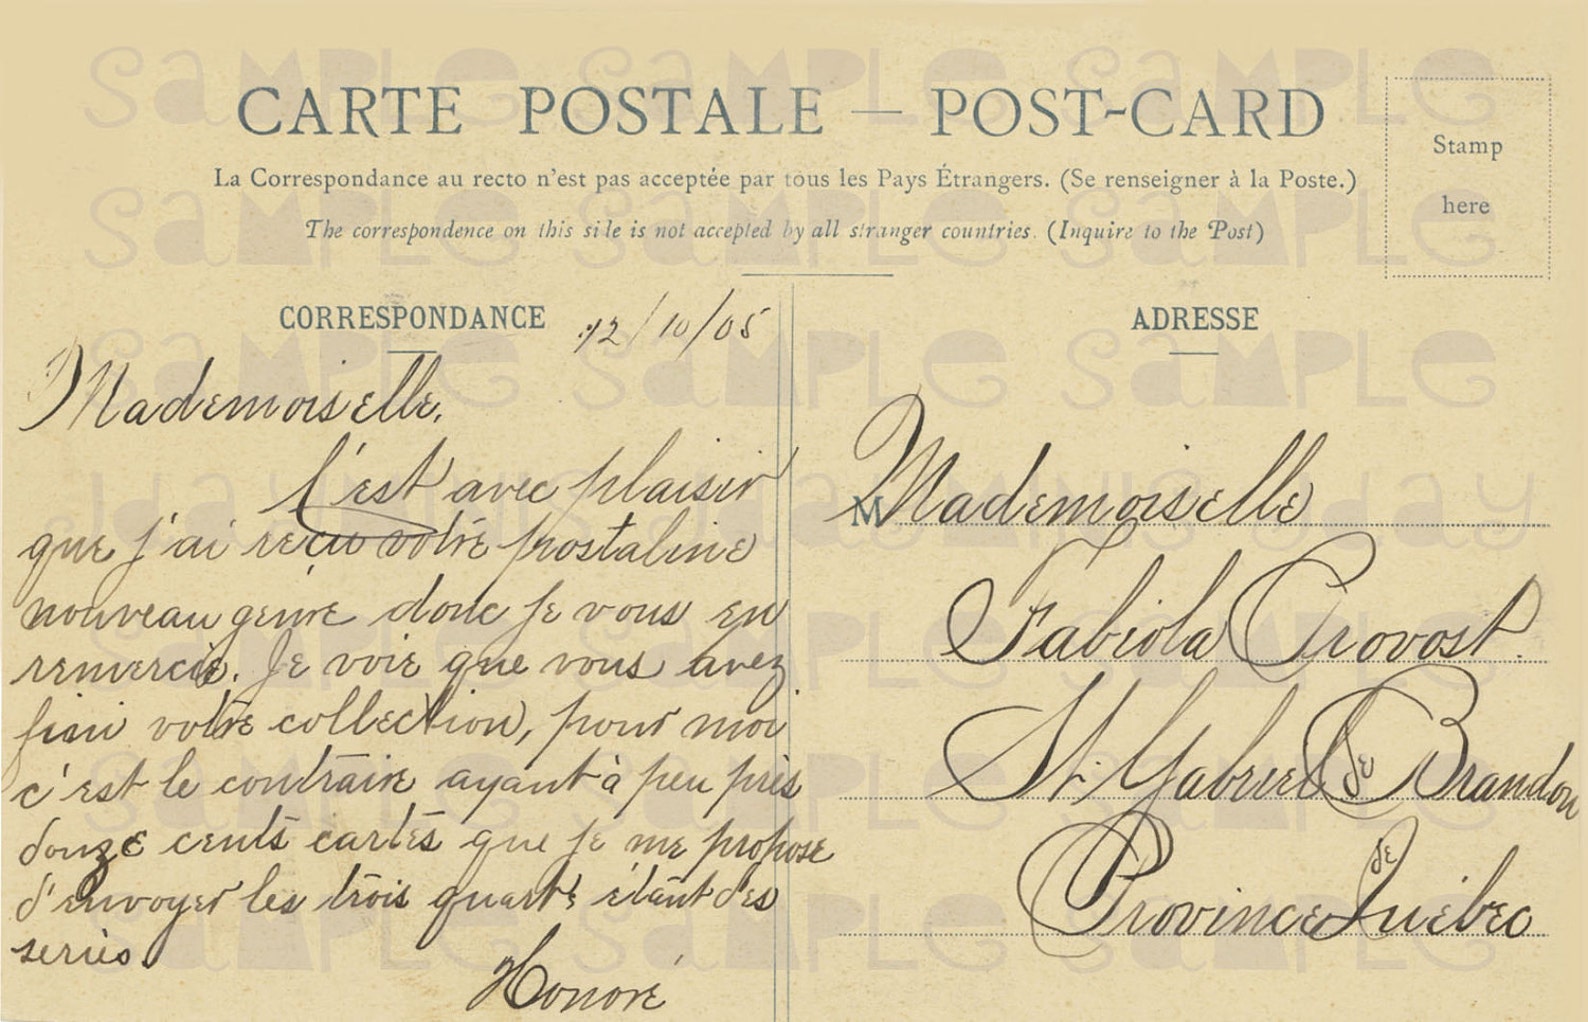 CARTE POSTALE — POST-CARD
La Correspondance au recto n'est pas acceptée par tous les Pays Étrangers. (Se renseigner à la Poste.)
The correspondence on this side is not accepted by all stranger countries. (Inquire to the Post)
Stamp
here
CORRESPONDANCE
12/10/05
Mademoiselle.
C'est avec plaisir
que j'ai reçu votre postaline
nouveau genre donc je vous en
remercie. Je voie que vous avez
fini votre collection, pour moi
c'est le contraire ayant à peu près
douze cents cartes que je me propose
d'envoyer les trois quarts étant des
series.
Honoré
ADRESSE
M Mademoiselle
Fabiola Provost.
St. Gabriel de Brandon
Province de Québec
SAMPLE SAMPLE SAMPLE
SAMPLE SAMPLE SAMPLE
SAMPLE SAMPLE SAMPLE
SAMPLE SAMPLE SAMPLE
SAMPLE SAMPLE SAMPLE
SAMPLE SAMPLE SAMPLE